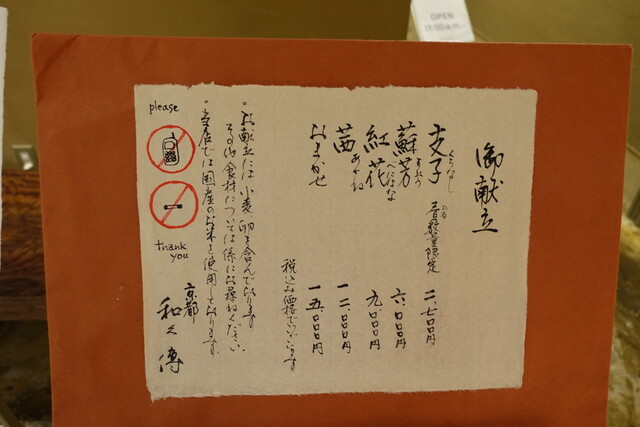 御献立
支子 くちなし 昼数量限定 ひる 二、七〇〇円
蘇芳 すおう 六、〇〇〇円
紅花 べにばな 九、〇〇〇円
茜 あかね 一二、〇〇〇円
おまかせ 一五、〇〇〇円
税込み価格でございます
・お献立には小麦、卵を含んでおります
その他食材については係にお尋ねください
・当店では国産のお米を使用しております。
京都
和久傳
please
thank
you
OPEN